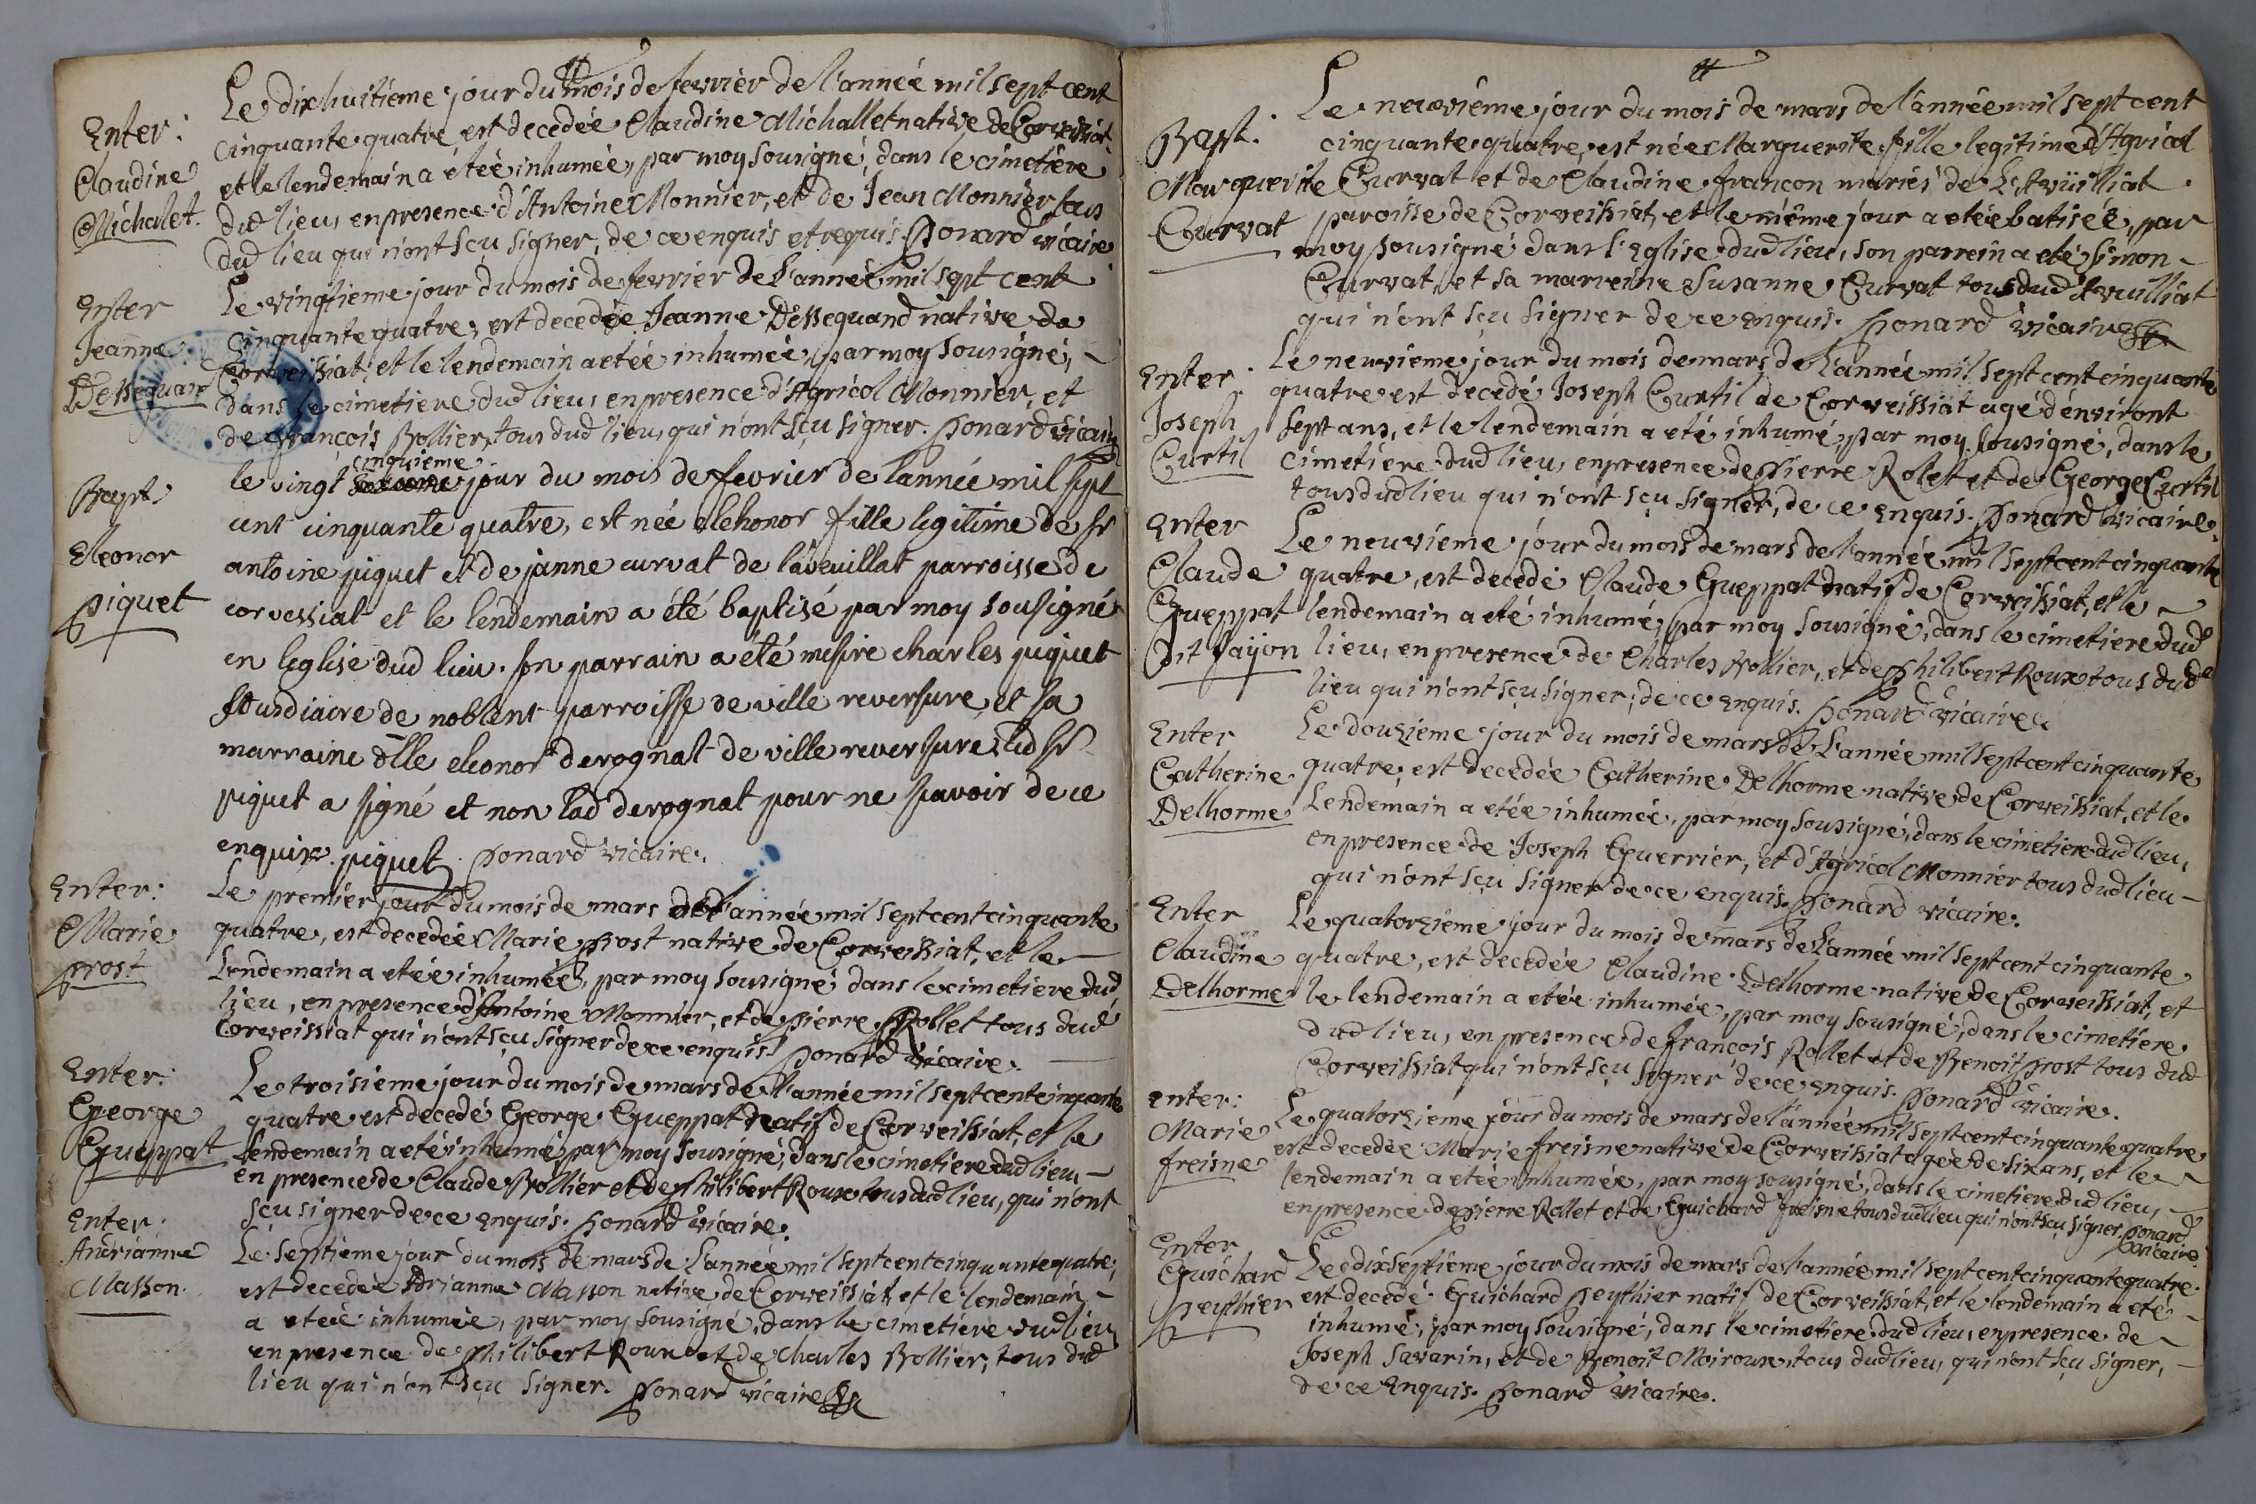 Le dixhuitieme jour du mois de fevrier de l'année mil sept cent
Enter:
cinquante quatre est decedée Claudine Michallet native de Corveissiat
Claudine
et le lendemain a étée inhumée, par moy sousigné, dans le cimetiere
Michalet.
dud lieu, en presence d'Antoine Monnier, et de Jean Monnier tous
dud lieu qui n'ont sçu signer, de ce enquis et requis. Ponard vicaire
Le vingtieme jour du mois de fevrier de l'année mil sept cent
Enter
cinquante quatre, est decedée Jeanne Dessequand native de
Jeanne
Corveissiat, et le lendemain a etée inhumée, par moy sousigné,
Dessequand
dans le cimetiere dud lieu, en presence d'Agricol Monnier, et
de François Bollier, tous dud lieu, qui n'ont sçu signer. Ponard vicaire
cinquieme
le vingt jour du mois de fevrier de lannée mil sept
Bapt:
cent cinquante quatre, est née elehonor fille legitime de sr
Eleonor
antoine piquet et de janne curvat de lavavillat parroisse de
piquet
corvessiat et le lendemain a été baptisé par moy sousigné
en leglise dud lieu. son parrain a été messire charles piquet
sousdiacre de noblens parroisse de ville reversure, et sa
marraine dlle eleonor derognat de ville reversure, led sr
piquet a signé et non lad derognat pour ne savoir de ce
enquix. piquet Ponard vicaire.
Enter:
Le premier jour du mois de mars de l'année mil sept cent cinquante
Marie
quatre, est decedée Marie Prost native de Corveissiat, et le
prost
Lendemain a etée inhumée, par moy sousigné, dans le cimetiere dud
lieu, en presence d'Antoine Monnier, et de Pierre Rollet tous dud
Corveissiat qui n'ont sçu signer de ce enquis Ponard vicaire.
Enter:
Le troisieme jour du mois de mars de l'année mil sept cent cinquante
George
quatre est decedé George Gueppat natif de Corveissiat, et le
Gueppat
Lendemain a eté inhumé, par moy sousigné, dans le cimetiere dud lieu
en presence de Claude Bollier et de Philibert Roux tous dud lieu, qui n'ont
sçu signer de ce enquis. Ponard vicaire.
Enter:
Andrianne
Le septieme jour du mois de mars de l'année mil sept cent cinquante quatre,
Masson.
est decedée Adrianne Masson native de Corveissiat et le lendemain
a etée inhumée, par moy sousigné, dans le cimetiere dud lieu
en presence de Philibert Roux et de Charles Bollier, tous dud
lieu qui n'ont sçu signer. Ponard vicaire
Le neuvième jour du mois de mars de l'année mil sept cent
Bapt:
cinquante quatre, est née Marguerite fille legitime d'Agricol
Marguerite
Curvat et de Claudine françon mariés de L'Avuilliat
Curvat
paroisse de Corveissiat, et le même jour a etée batisée, par
moy sousigné dans l'Eglise dud lieu, son parrein a eté simon
Curvat, et sa marreine Susanne Curvat tous dud Avuilliat
qui n'ont sçu signer de ce enquis. Ponard vicaire
Enter:
Le neuvieme jour du mois de mars de l'année mil sept cent cinquante
Joseph
quatre est decedé Joseph Curtil de Corveissiat agé d'environt
Curtil
sept ans, et le lendemain a eté inhumé, par moy sousigné, dans le
cimetiere dud lieu, en presence de Pierre Rolet et de George Curtil
tous dud lieu qui n'ont sçu signer, de ce enquis. Ponard vicaire.
Enter
Le neuvième jour du mois de mars de l'année mil sept cent cinquante
Claude
quatre, est decedé Claude Gueppat natif de Corveissiat, et le
Gueppat
lendemain a eté inhumé, par moy sousigné, dans le cimetiere dud
Dit Jayon
lieu, en presence de Charles Bollier, et de Philibert Roux tous dud
lieu qui n'ont sçu signer, de ce enquis. Ponard vicaire.
Enter
Le douzieme jour du mois de mars de l'année mil sept cent cinquante
Catherine
quatre, est decedée Catherine Delhorme native de Corveissiat, et le
Delhorme
Lendemain a etée inhumée, par moy sousigné, dans le cimetiere dud lieu,
en presence de Joseph Guerrier, et d'Agricol Monnier tous dud lieu
qui n'ont sçu signer de ce enquis. Ponard vicaire.
Enter
Le quatorzieme jour du mois de mars de L'année mil sept cent cinquante
Claudine
quatre, est decedée Claudine Delhorme native de Corveissiat, et
Delhorme
le lendemain a etée inhumée, par moy sousigné, dans le cimetiere
dud lieu, en presence de françois Rollet et de Benoit Prost tous dud
Corveissiat qui n'ont sçu signer de ce enquis. Ponard vicaire.
Enter:
Le quatorzieme jour du mois de mars de l'année mil sept cent cinquante quatre
Marie
est decedée Marie freisne native de Corveissiat agée de six ans, et le
freisne
lendemain a etée inhumée, par moy sousigné, dans le cimetiere dud lieu,
en presence de Pierre Rollet et de Guichard freisne tous dud lieu qui n'ont sçu signer. Ponard
vicaire
Enter
Le dixseptième jour du mois de mars de l'année mil sept cent cinquante quatre
Guichard
est decedé Guichard Peythier natif de Corveissiat, et le lendemain a eté
Peythier
inhumé, par moy sousigné, dans le cimetiere dud lieu, en presence de
Joseph Savarin, et de Benoit Moiroux, tous dud lieu, qui n'ont sçu signer,
de ce Enquis. Ponard vicaire.